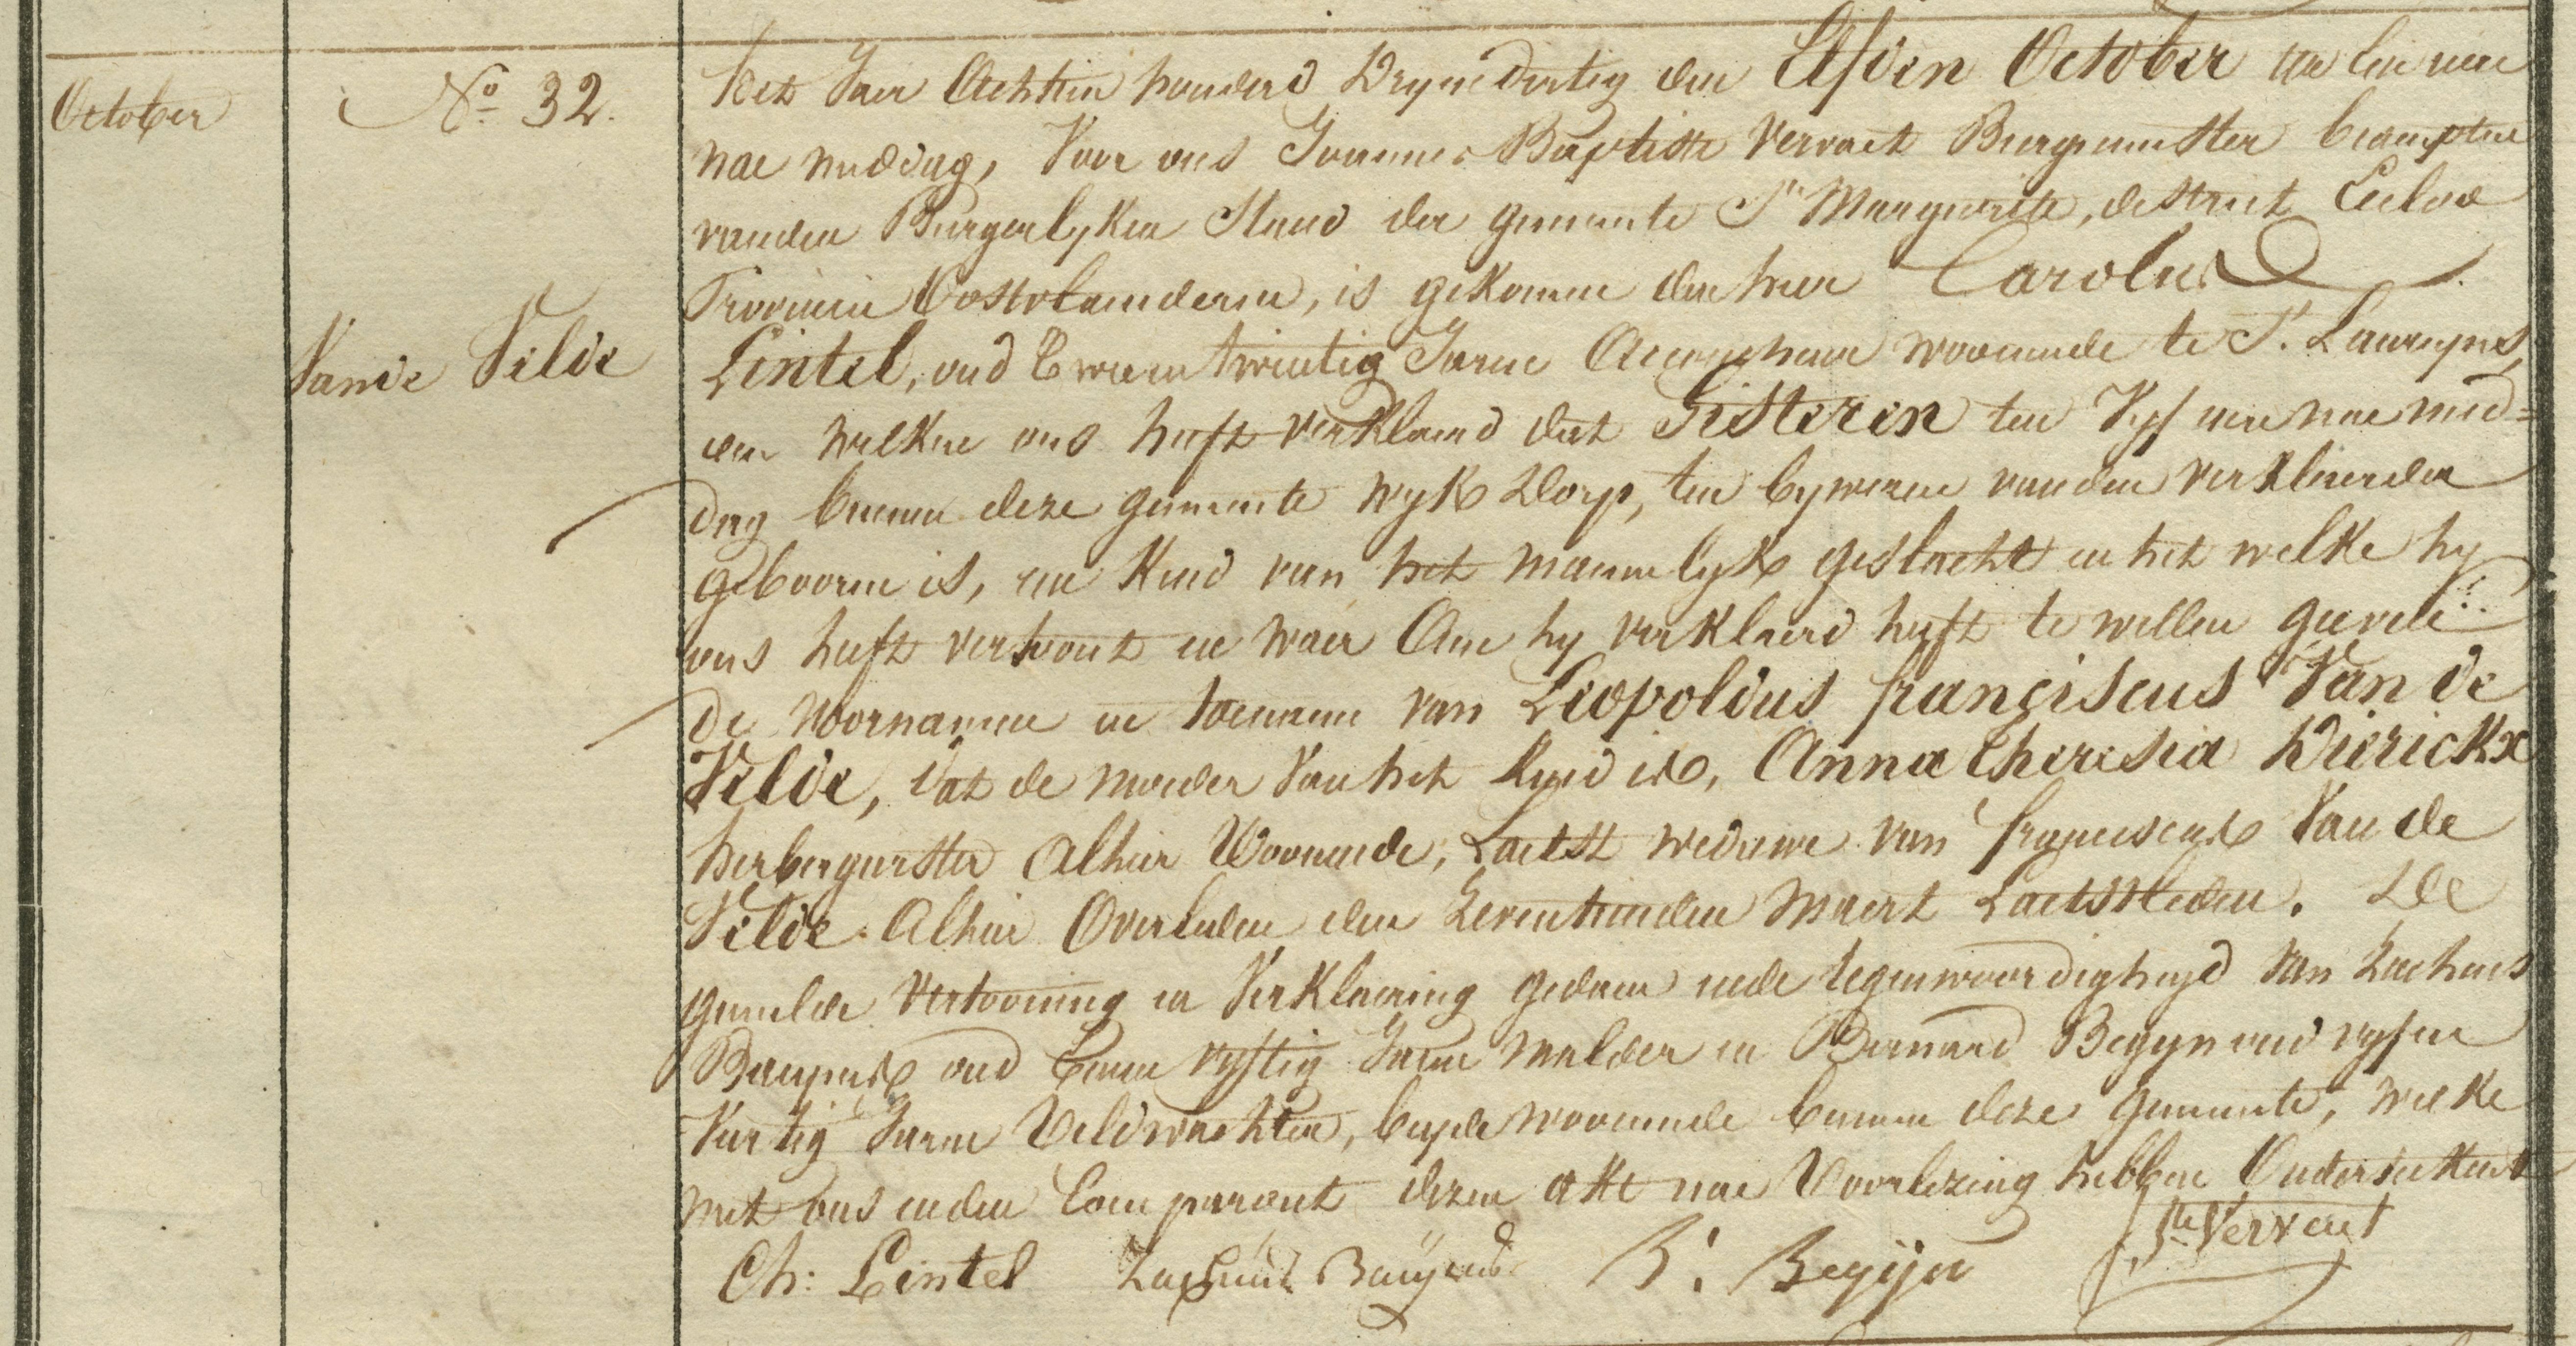 October
N° 32.
Vande Velde
Het Jaer Achtien honderd Dryendertig den Elfden October ten een ure
nae middag, Voor ons Joannes Baptiste Vervaet Burgemeester beampten
vanden Burgerlyken Stand der gemeente St Marguerite, destrict Eecloo
Provincie Oostvlaenderen, is gekomen den heer Carolus
Lintel, oud Tweentwintig Jaren woonende te St. Laureyns,
den welken ons heeft verklaerd dat Gisteren ten Vyf uren nae mid=
dag binnen deze gemeente wyk Dorp, ten bywezen vanden verklaerder
gebooren is, een Kind van het mannelyk geslacht en het welke hy
ons heeft vertoont en waer Aen hy verklaerd heeft te willen geeven
de voornamen en toenaem van Leopoldus franciscus Van de
Velde, dat de moeder Van het Kind is, Anna Theresia Dierickx
herbergierster Alhier Woonende, Laetst weduwe van franciscus Van de
Velde Alhier Overleden den Zeventienden Maert Laetstleden. De
gemelde Vertooning en Verklaering gedaen inde tegenwoordigheyd Van Zacheus
Bauyens oud Eenen vyftig Jaren Mulder en Bernard Begyn oud vyfen
Veertig Jaren Veldwachter, beyde woonende binnen deze gemeente, welke
met ons enden Comparant dezen akte nae Voorlezing hebben Onderteekent
Ch: Lintel Zacheus Bauÿens B. Begijn J Bte Vervaet